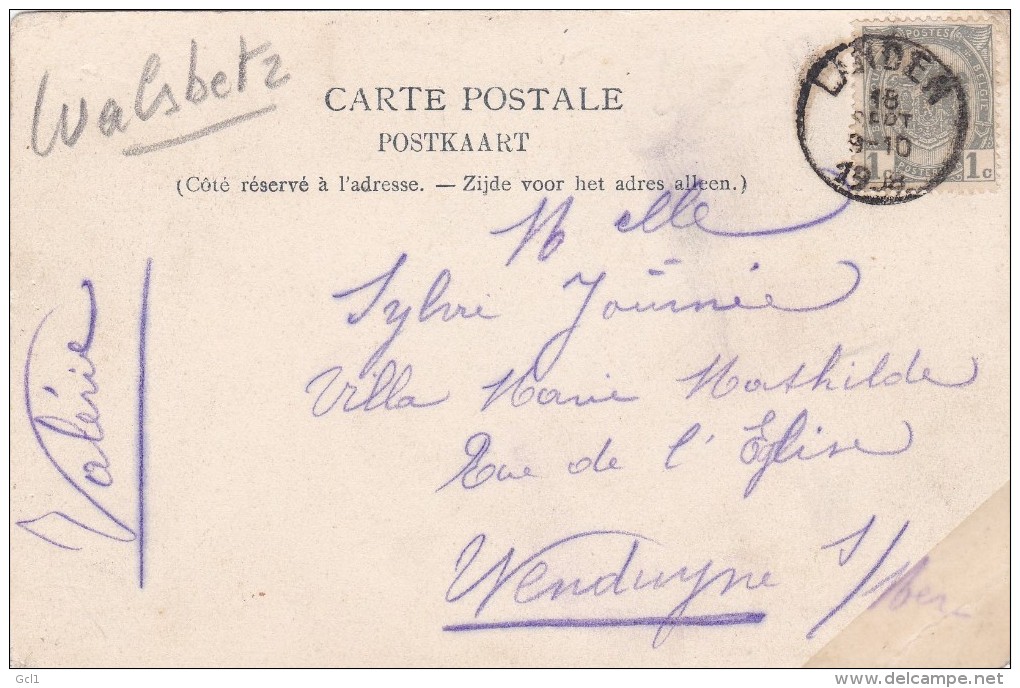 Walsbetz
CARTE POSTALE
POSTKAART
(Côté réservé à l'adresse. — Zijde voor het adres alleen.)
POSTES
BELGIE
1 1c
18
SEPT
9-10
Melle
Sylvie Journée
Villa Marie Mathilde
Rue de l'Eglise
Wenduyne s/Mer
Valérie
Gcl1
delcampe.net